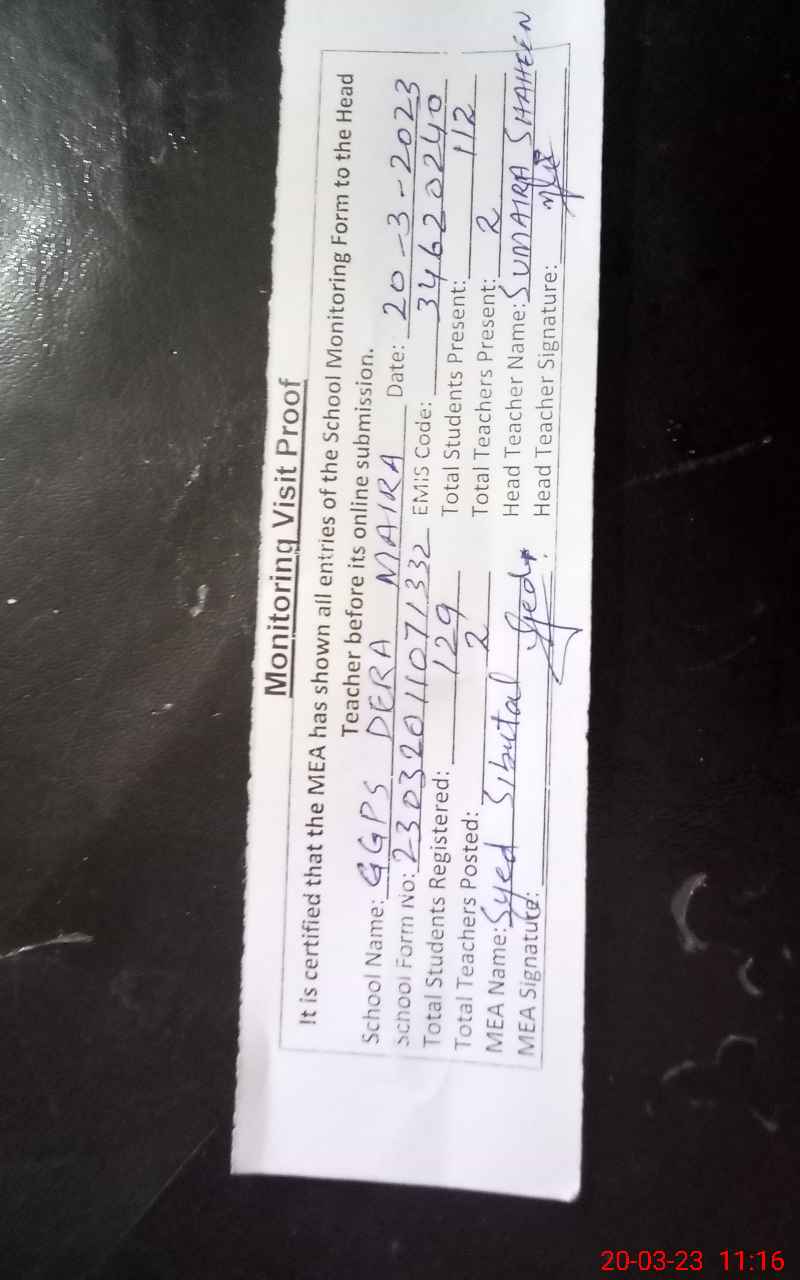 Monitoring Visit Proof
It is certified that the MEA has shown all entries of the School Monitoring Form to the Head
Teacher before its online submission.
School Name: GGPS DERA MAIRA Date: 20-3-2023
School Form No: 23032011071332 EMIS Code: 34620240
Total Students Registered: 129 Total Students Present: 112
Total Teachers Posted: 2 Total Teachers Present: 2
MEA Name: Syed Sibutal Head Teacher Name: SUMAIRA SHAHEEN
MEA Signature: Head Teacher Signature:
20-03-23 11:16